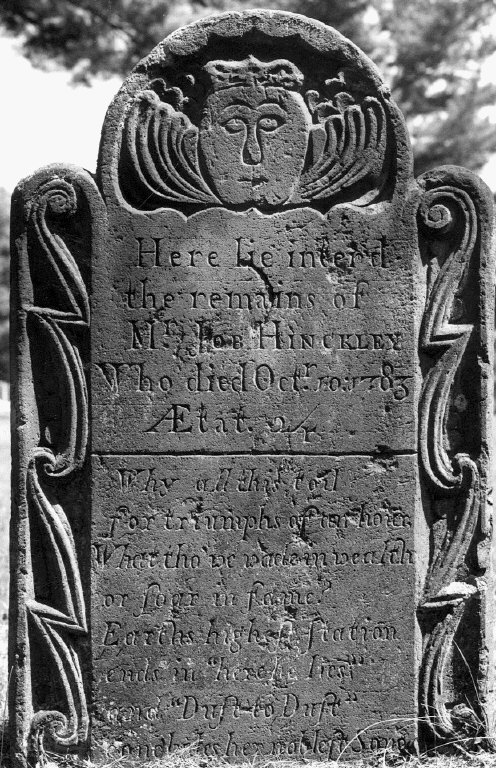 Here lie interd
the remains of
Mr. JOB HINCKLEY
Who died Octr. 10. 1783
Ætat. 24.
Why all this toil
for triumphs of an hour
What tho' we wade in wealth
or ſoar in fame?
Earths higheſt ſtation
ends in "here he lies"
and "Duſt to Duſt"
concludes her nobleſt Song